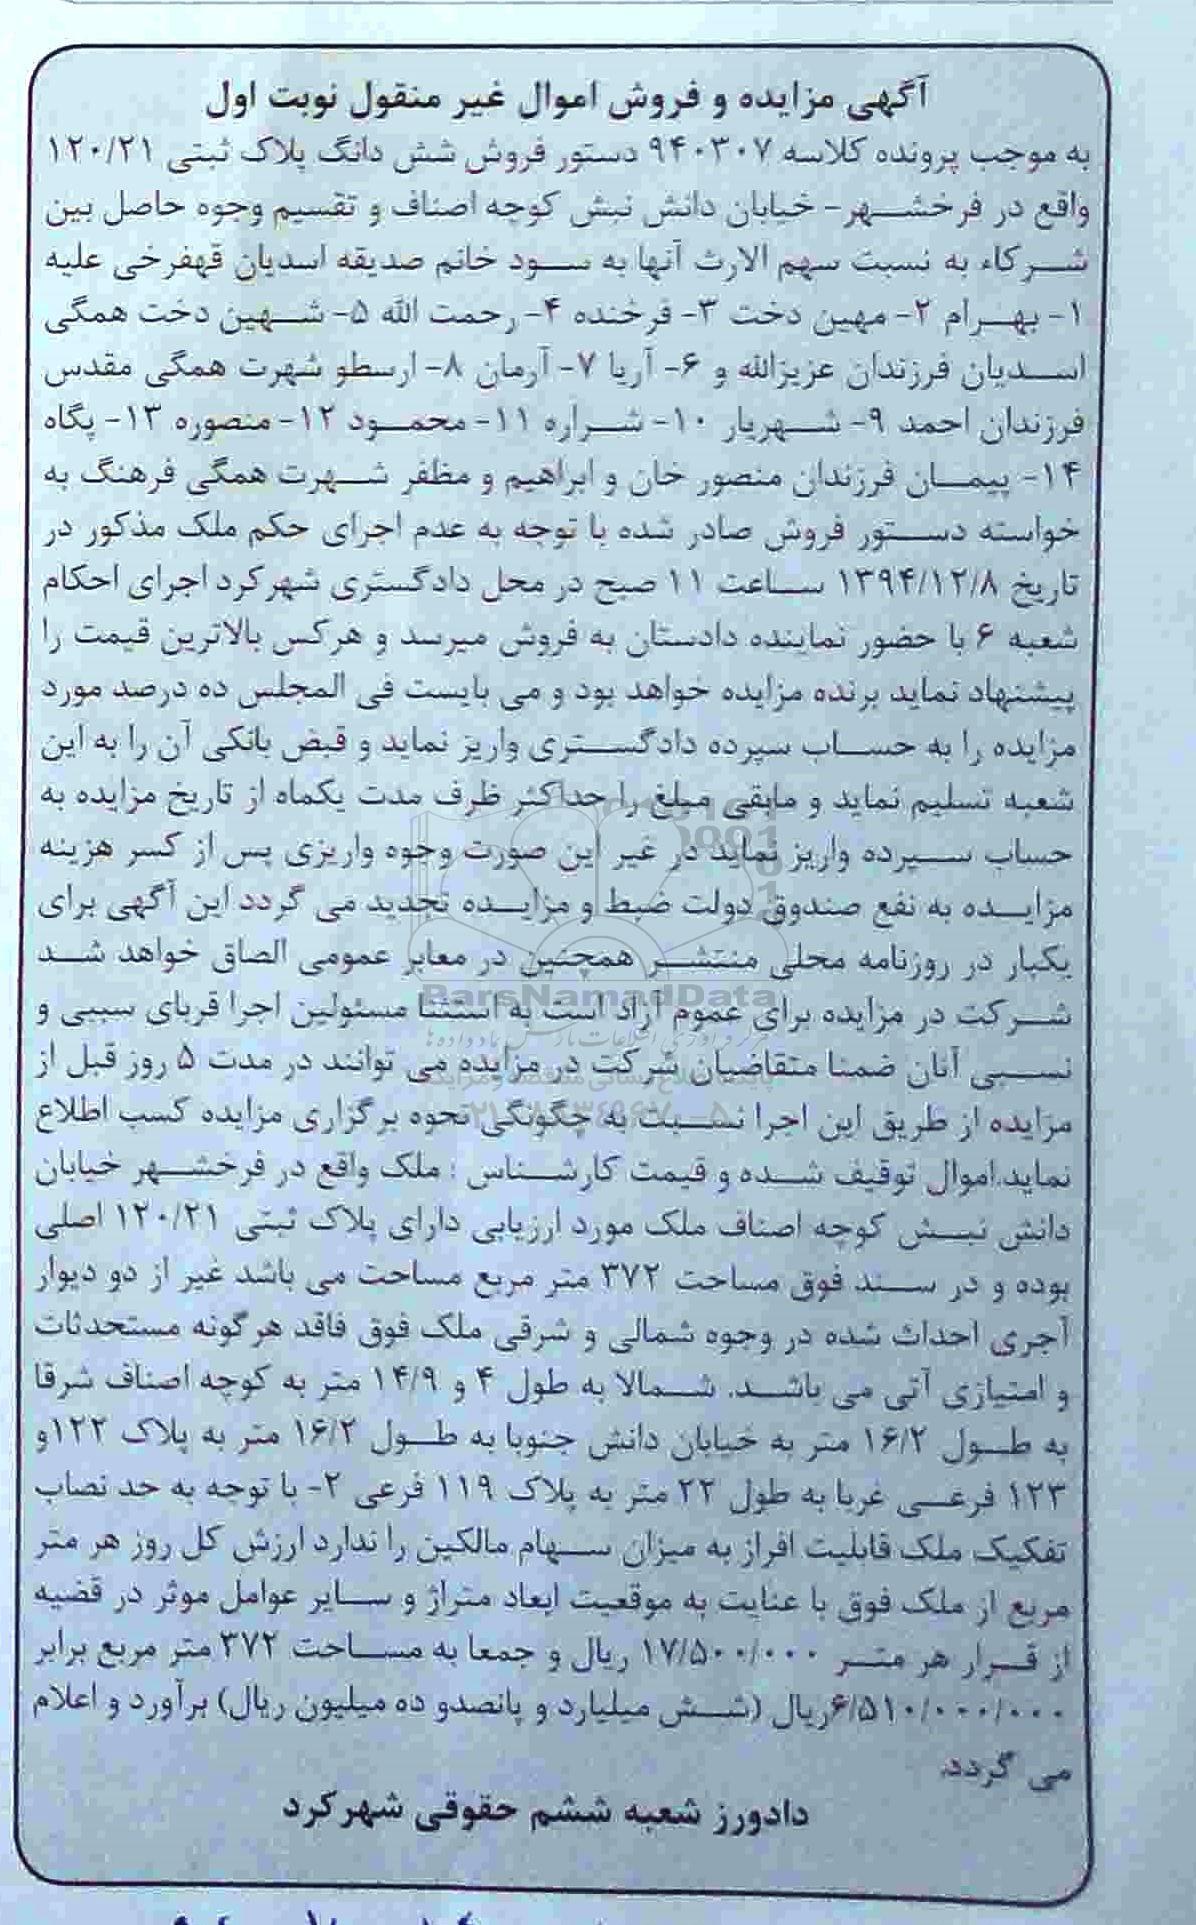 آگهی مزایده و فروش اموال غیر منقول نوبت اول
به موجب پرونده کلاسه ۹۴۰۳۰۷ دستور فروش شش دانگ پلاک ثبتی ۱۲۰/۲۱
واقع در فرخشهر- خیابان دانش نبش کوچه اصناف و تقسیم وجوه حاصل بین
شرکاء به نسبت سهم الارث آنها به سود خانم صدیقه اسدیان قهفرخی علیه
۱- بهرام ۲- مهین دخت ۳- فرخنده ۴- رحمت الله ۵- شهین دخت همگی
اسدیان فرزندان عزیزالله و ۶- آریا ۷- آرمان ۸- ارسطو شهرت همگی مقدس
فرزندان احمد ۹- شهریار ۱۰- شراره ۱۱- محمود ۱۲- منصوره ۱۳- پگاه
۱۴- پیمان فرزندان منصور خان و ابراهیم و مظفر شهرت همگی فرهنگ به
خواسته دستور فروش صادر شده با توجه به عدم اجرای حکم ملک مذکور در
تاریخ ۱۳۹۴/۱۲/۸ ساعت ۱۱ صبح در محل دادگستری شهرکرد اجرای احکام
شعبه ۶ با حضور نماینده دادستان به فروش میرسد و هرکس بالاترین قیمت را
پیشنهاد نماید برنده مزایده خواهد بود و می بایست فی المجلس ده درصد مورد
مزایده را به حساب سپرده دادگستری واریز نماید و قبض بانکی آن را به این
شعبه تسلیم نماید و مابقی مبلغ را حداکثر ظرف مدت یکماه از تاریخ مزایده به
حساب سپرده واریز نماید در غیر این صورت وجوه واریزی پس از کسر هزینه
مزایده به نفع صندوق دولت ضبط و مزایده تجدید می گردد این آگهی برای
یکبار در روزنامه محلی منتشر همچنین در معابر عمومی الصاق خواهد شد
ParsNamadData
شرکت در مزایده برای عموم آزاد است به استثنا مسئولین اجرا قربای سببی و
نسبی آنان ضمنا متقاضیان شرکت در مزایده می توانند در مدت ۵ روز قبل از
مزایده از طریق این اجرا نسبت به چگونگی نحوه برگزاری مزایده کسب اطلاع
نماید.اموال توقیف شده و قیمت کارشناس : ملک واقع در فرخشهر خیابان
دانش نبش کوچه اصناف ملک مورد ارزیابی دارای پلاک ثبتی ۱۲۰/۲۱ اصلی
بوده و در سند فوق مساحت ۳۷۲ متر مربع مساحت می باشد غیر از دو دیوار
آجری احداث شده در وجوه شمالی و شرقی ملک فوق فاقد هرگونه مستحدثات
و امتیازی آتی می باشد. شمالا به طول ۴ و ۱۴/۹ متر به کوچه اصناف شرقا
به طول ۱۶/۲ متر به خیابان دانش جنوبا به طول ۱۶/۲ متر به پلاک ۱۲۲و
۱۲۳ فرعی غربا به طول ۲۲ متر به پلاک ۱۱۹ فرعی ۲- با توجه به حد نصاب
تفکیک ملک قابلیت افراز به میزان سهام مالکین را ندارد ارزش کل روز هر متر
مربع از ملک فوق با عنایت به موقعیت ابعاد متراژ و سایر عوامل موثر در قضیه
از قرار هر متر ۱۷/۵۰۰/۰۰۰ ریال و جمعا به مساحت ۳۷۲ متر مربع برابر
۶/۵۱۰/۰۰۰/۰۰۰ریال (شش میلیارد و پانصدو ده میلیون ریال) برآورد و اعلام
می گردد.
دادورز شعبه ششم حقوقی شهرکرد